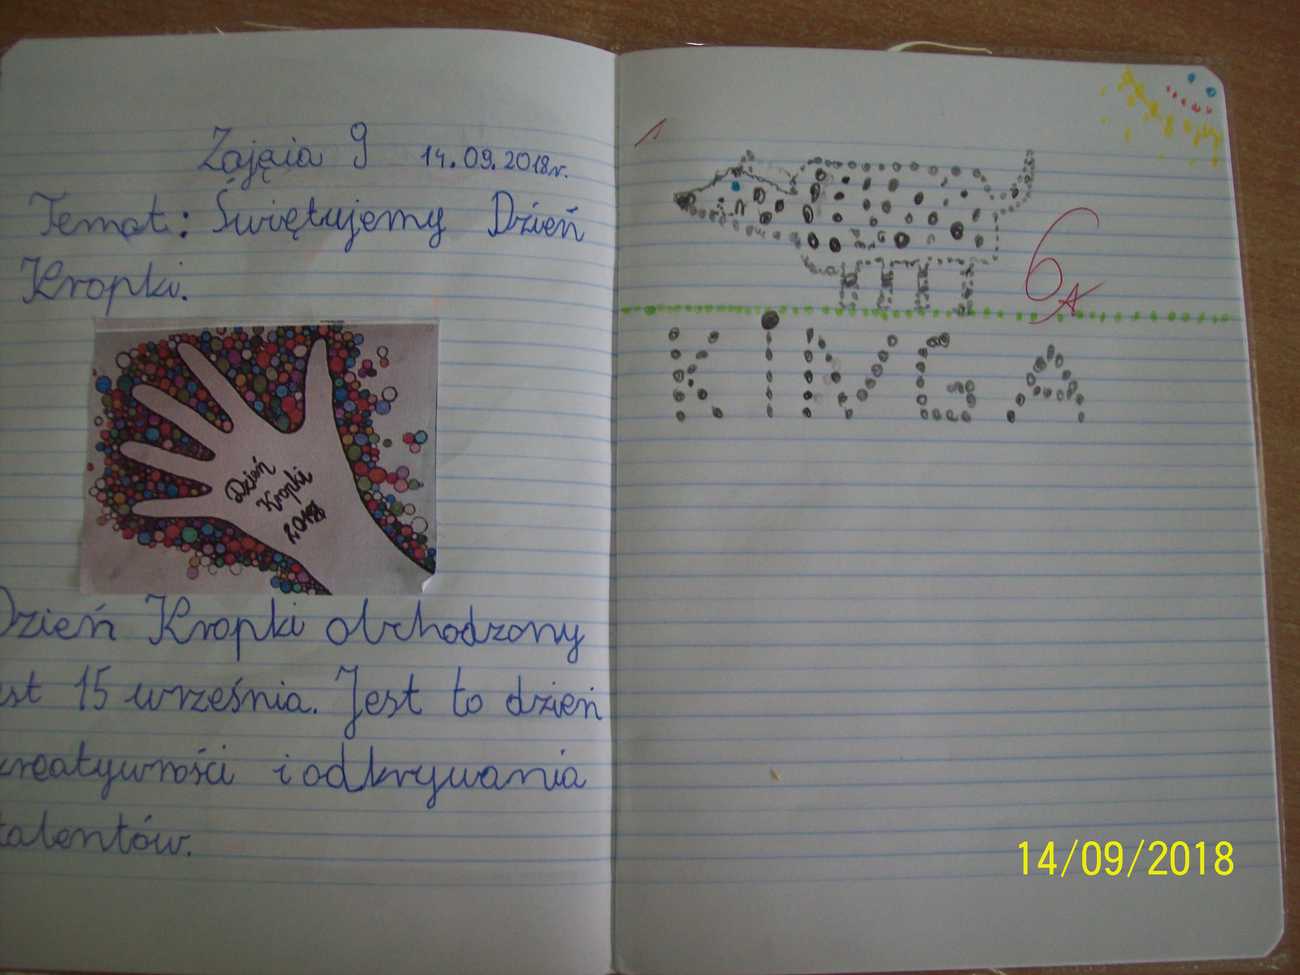 Zajęcia 9 14.09.2018r.
Temat: Świętujemy Dzień
Kropki.
Dzień
Kropki
2018
Dzień Kropki obchodzony
est 15 września. Jest to dzień
kreatywności i odkrywania
talentów.
6
KINGA
14/09/2018